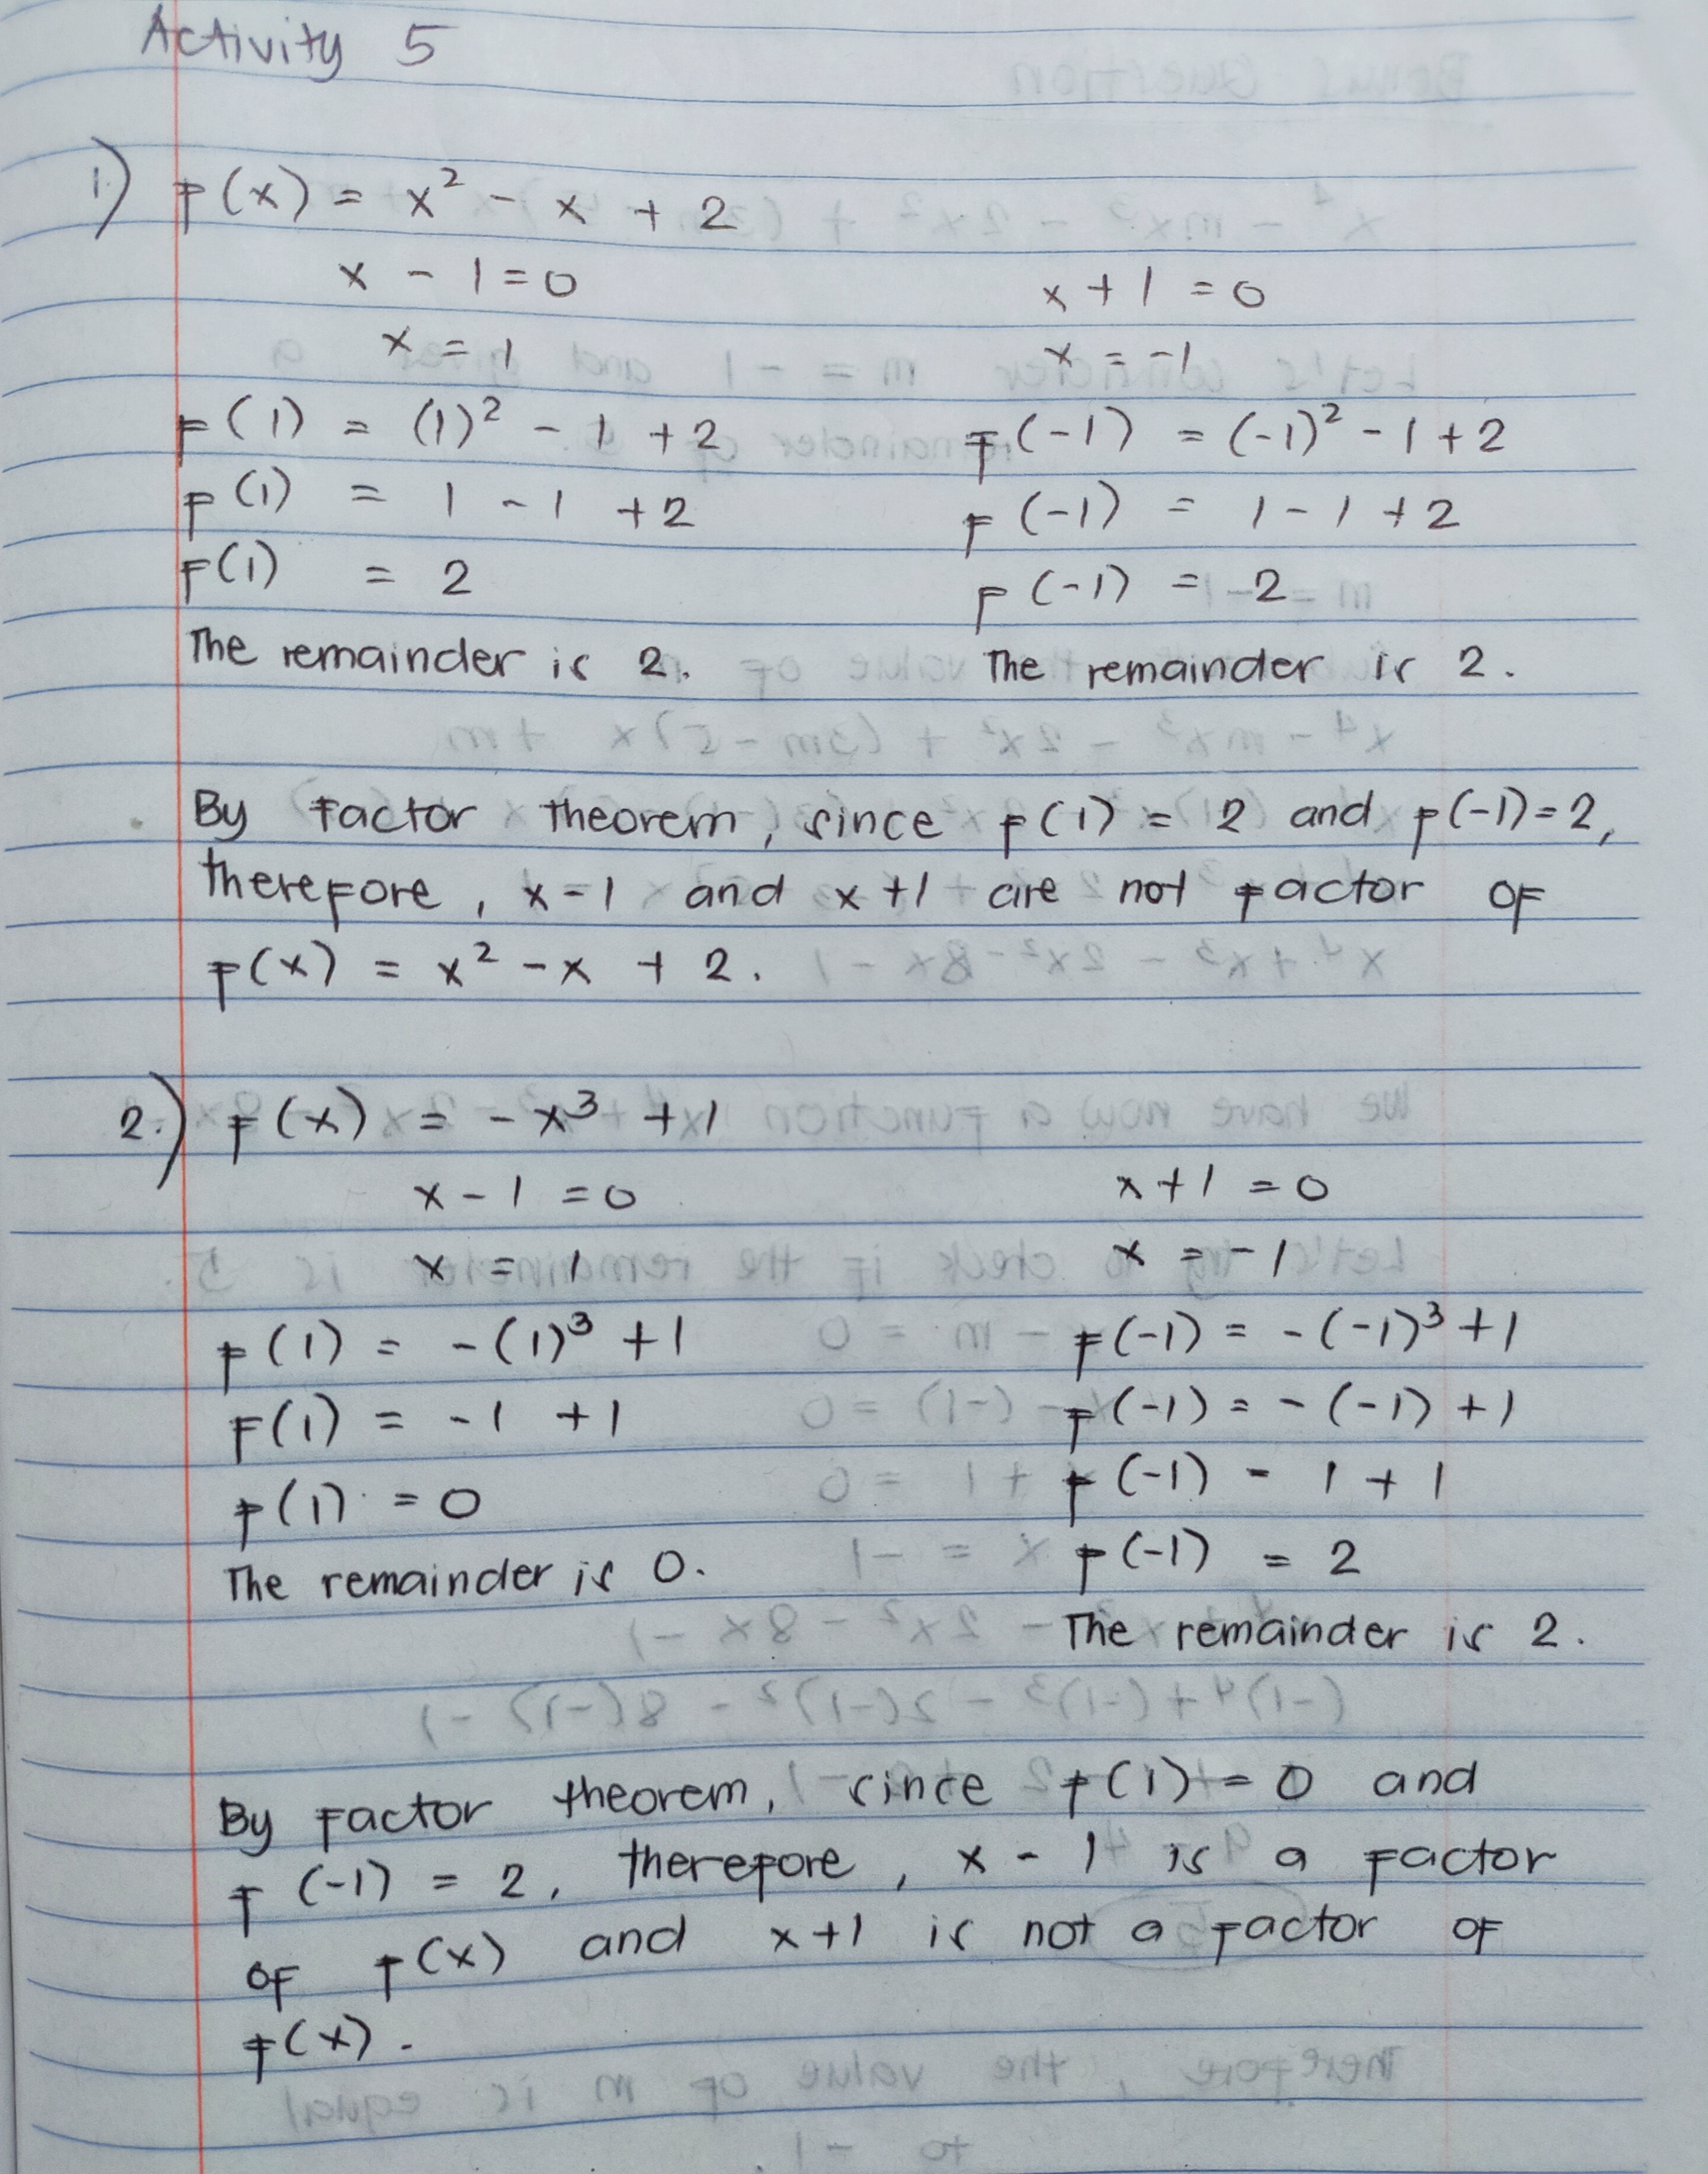 Activity 5
1.) f(x) = x² - x + 2
x - 1 = 0
x = 1
f(1) = (1)² - 1 + 2
f(1) = 1 - 1 + 2
f(1) = 2
The remainder is 2.
x + 1 = 0
x = -1
f(-1) = (-1)² - 1 + 2
f(-1) = 1 - 1 + 2
f(-1) = 2
The remainder is 2.
By factor theorem, since f(1) = 2 and f(-1) = 2,
therefore, x - 1 and x + 1 are not factor of
f(x) = x² - x + 2.
2.) f(x) = - x³ + 1
x - 1 = 0
x = 1
f(1) = - (1)³ + 1
f(1) = - 1 + 1
f(1) = 0
The remainder is 0.
x + 1 = 0
x = -1
f(-1) = - (-1)³ + 1
f(-1) = - (-1) + 1
f(-1) = 1 + 1
f(-1) = 2
The remainder is 2.
By factor theorem, since f(1) = 0 and
f(-1) = 2, therefore, x - 1 is a factor
of f(x) and x + 1 is not a factor of
f(x).